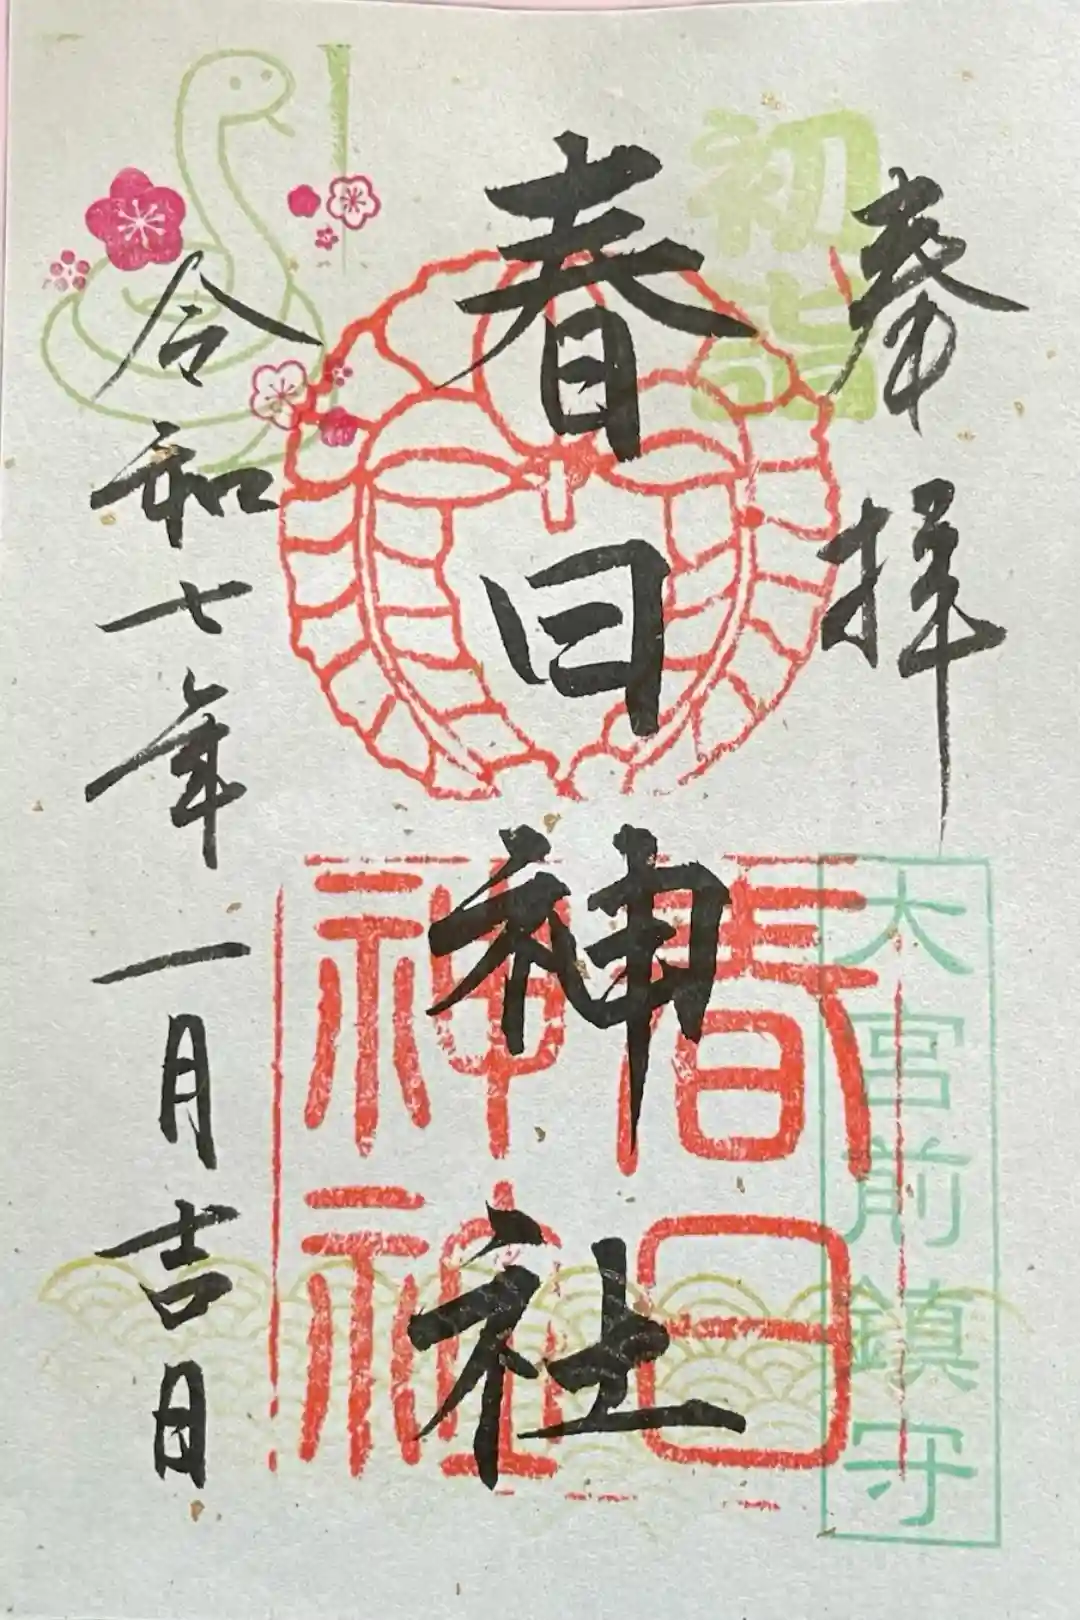 奉拝
初詣
大宮前鎮守
春日神社
春日
神社
令和七年一月吉日